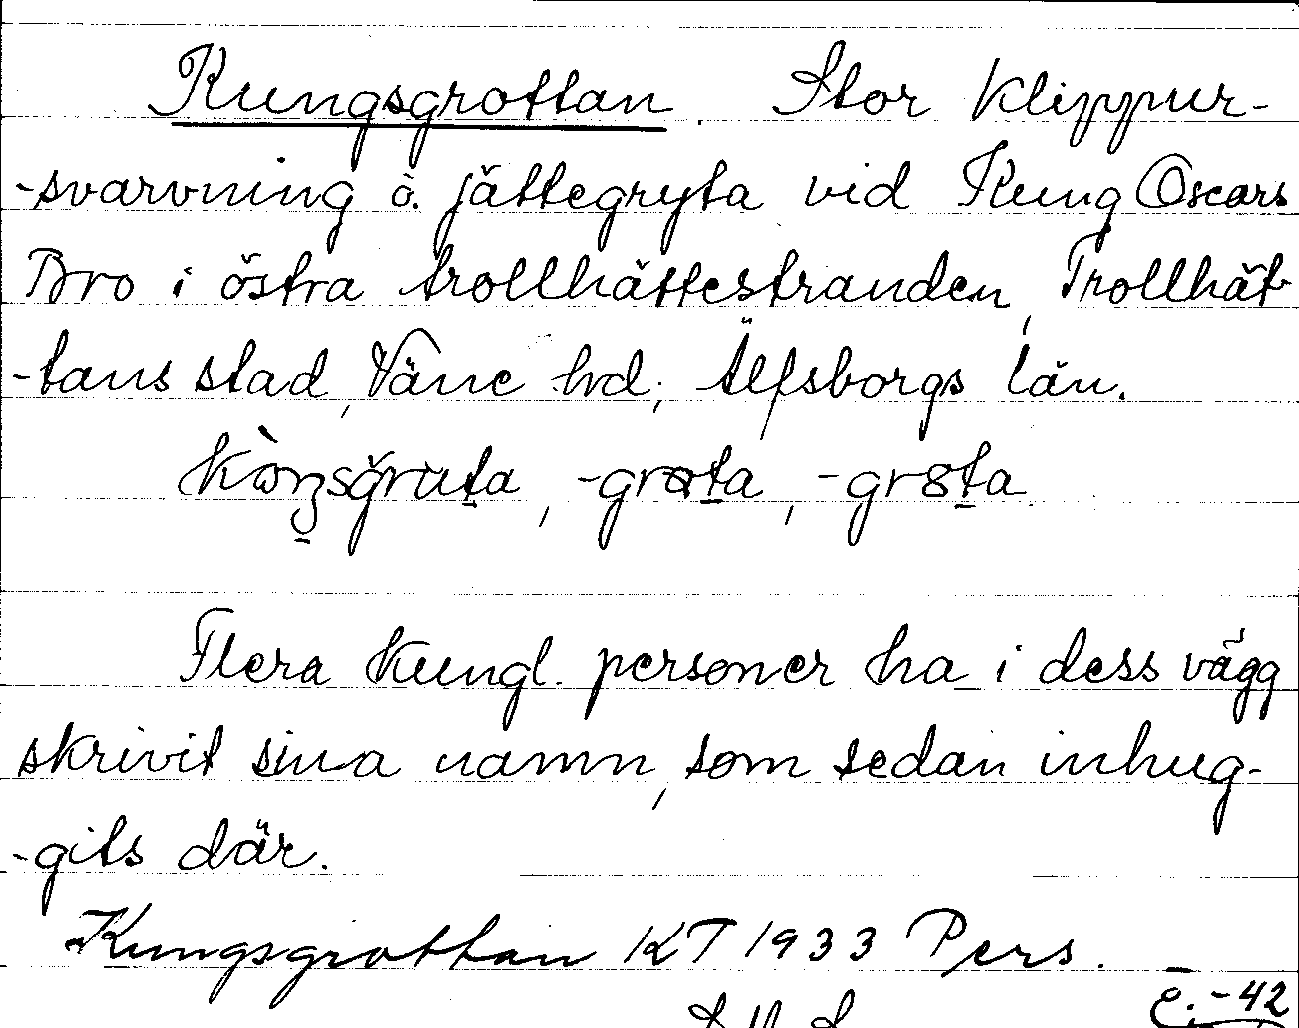 Kungsgrottan. Stor klippur-
-svarvning o. jättegryta vid Kung Oscars
Bro i östra trollhättestranden, Trollhät-
-tans stad, Väne hd, Älfsborgs län.
-grota
Flera kungl. personer ha i dess vägg
skrivit sina namn, som sedan inhug-
-gits där.
Kungsgrottan KT 1933 Pers.
E. -42